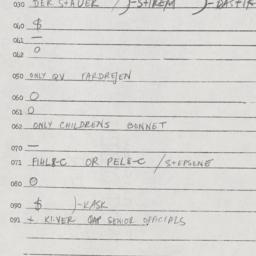 030 DER STAVER / )-STIREM )-DASTIK
040 $
041 —
042 O
050 ONLY QV YARDREJEN
060 O
061 O
062 ONLY CHILDRENS BONNET
070 —
071 FIHLB-C OR PELB-C /STEPSENE
080 O
090 $ )-KASK
091 + KI.VER CAP SENIOR OFFICIALS